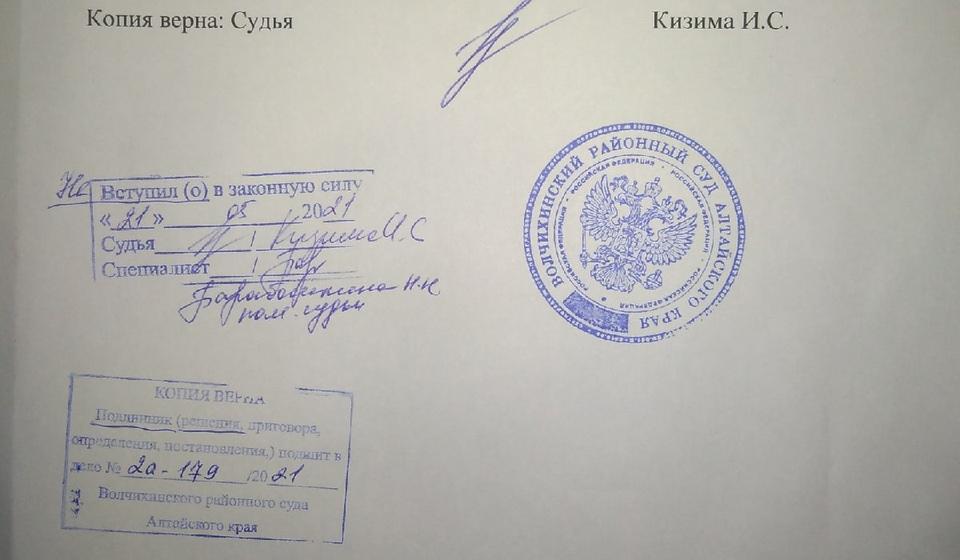 Копия верна: Судья Кизима И.С.
Не Вступил (о) в законную силу
« 21 » 05 2021
Судья Кизима И.С
Специалист
пом. судьи
ВОЛЧИХИНСКИЙ РАЙОННЫЙ СУД АЛТАЙСКОГО КРАЯ
РОССИЙСКАЯ ФЕДЕРАЦИЯ • РОССИЙСКАЯ ФЕДЕРАЦИЯ • РОССИЙСКАЯ ФЕДЕРАЦИЯ • РОССИЙСКАЯ ФЕДЕРАЦИЯ
КОПИЯ ВЕРНА
Подлинник (решения, приговора,
определения, постановления,) подшит в
дело № 2а-179 /2021
Волчихинского районного суда
Алтайского края